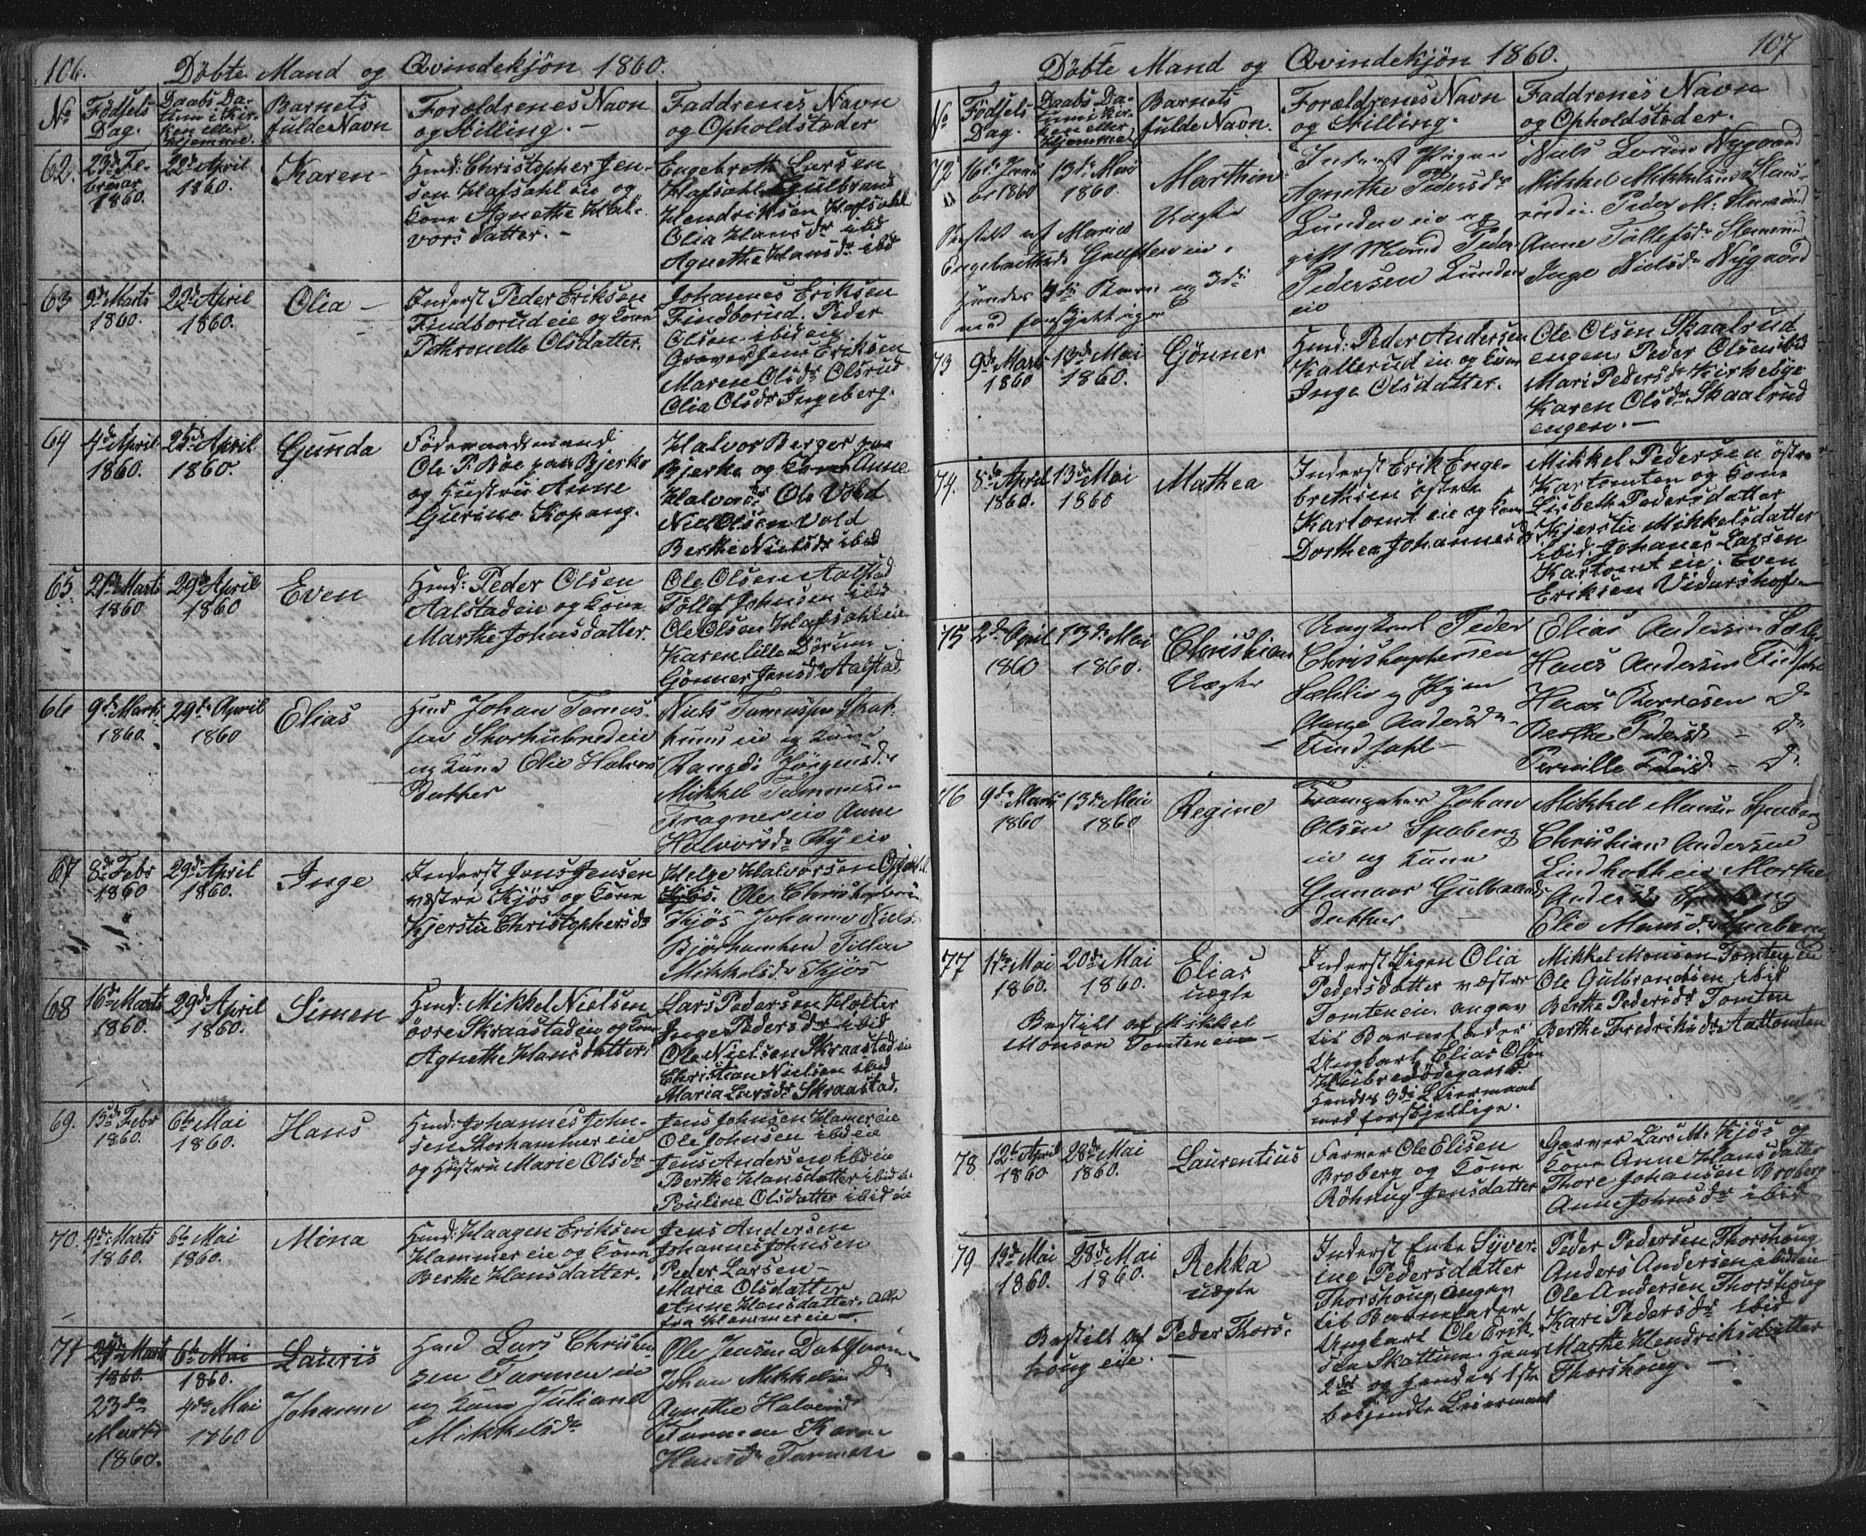 106.
Döbte Mand og Qvindekjön 1860.
No
Födsels Dag.
Daabs Datum i Kirken eller Hjemme.
Barnets fulde Navn
Forældrenes Navn og Stilling. -
Faddrenes Navn og Opholdstæder
62.
23de Februar 1860.
22de April 1860.
Karen -
Hmd: Christopher Jensen Hafsahl eie og Kone Agnethe Halvorsdatter. -
Engebreth Larsen
Hafsahl Gulbrand
Hendriksen Hafsahl
Olia Hansdr ibd
Agnethe Hansdr ibd
63
9de Marts 1860.
22de April 1860.
Olia -
Inderst Peder Eriksen
Findborud eie og Kone
Pethronelle Olsdatter.
Johannes Eriksen
Findborud. Peder
Olsen ibid en
Graver Jens Eriksen
Maren Olsdr Olsrud
Olia Olsdr Ingeberg.
64
4de April 1860.
25de April 1860.
Gunda
Föderaadsmand
Ole P. Böe paa Bjerke
og Hustru Anne
Gurine Kopang.
Halvor Berger paa
Bjerke og Kone Anne
Halvorsdr Ole Vold
Niels Olsen Vold
Berthe Nielsdr ibid
65
21de Marts 1860
29de April 1860
Even
Hmd: Peder Olsen
Aalstad eie og Kone
Marthe Johnsdatter.
Ole Olsen Aalstad
Töllef Johnsen ibid
Ole Olsen Hafsahl eie
Karen lille Dörum
Gönner Jensdr Aalstad
66
9de Marts 1860.
29de April 1860
Elias
Hmd Johan Tomassen
eie
og Kone Olie Halvors
Datter
Niels Tomassen
eie og Kone
Jörgensdr
Mikkel Tommesen
Fragner eie Anne
Halvorsdr Ry eie
67
8de Febr 1860
29de April 1860.
Inge
Inderst Jens Jensen
væstre Kjös og Kone
Kjersti Christophersdr
Helge Halvorsen
Kjös. Ole Christophersen
Kjös Johanne Niels
Björhamhen Tilla
Mikkelsdr Kjös
68
16de Marts 1860.
29de April 1860.
Simen
Hmd: Mikkel Nielsen
övre Skraastad eie og Kone
Agnethe Hansdatter.
Lars Pedersen Holter
Inge Pedersdr ibid
Ole Nielsen Skraastad eie
Christian Nielsen ibid
Maria Larsdr Skraastad.
69.
15de Febr 1860.
6te Mai 1860.
Hans
Hmd: Johannes Johnsen Storhammer eie
og Hustru Marie Olsdr
Jens Johnsen Hamer eie
Ole Johnsen ibid eie
Jens Andersen ibid eie
Berthe Hansdatter ibid
Pouline Olsdatter ibid eie
70.
4de Marts 1860.
6te Mai 1860.
Mina
Hmd: Haagen Eriksen
Hammer eie og Kone
Berthe Hansdatter.
Jens Andersen
Johannes Johnsen
Peder Larsen -
Marie Olsdatter
Anne Hansdatter. Alle
fra Hammer eie -
71
29de Marts 1860.
6te Mai 1860.
Lauris
23de Marts 1860.
4de Mai 1860
Johanne
Hmd Lars Christensen Farmen eie
og Kone Juliane
Mikkelsdr
Ole Jensen Dahl
Johan Mikkelsen Do
Agnethe Halvorsdr
Farmen Karen
Hansdr Farmen
107
Döbte Mand og Qvindekjön 1860.
No
Födsels Dag.
Daabs Datum i Kirken eller Hjemme
Barnets fulde Navn.
Forældrenes Navn og Stilling.
Faddrenes Navn og Opholdstæder.
72
16de 1860
13de Mai 1860.
Marthin
Uægte
Anmeldt af Marie
Engebrethsdr eie.
Hendes 3die Barn og 3die
med forskjellige
Inderst Pigen
Agnethe Pedersdr
Lunden eie og
gift Mand Peder
Pedersen Lunden
eie
Niels Larsen Nygaard
Mikkel Mikkelsen
Peder M.
Anne Töllefsdr
Inge Nielsdr Nygaard
73
9de Marts 1860
13de Mai 1860.
Gönner
Hmd: Peder Andersen
Kallerud eie og Kone
Inge Olsdatter.
Ole Olsen Skaalrud
engen, Peder Olsen ibid
Mari Pedersdr Kirkebye
Karen Olsdr Skaalrud
engen. -
74.
8de April 1860.
13de Mai 1860
Mathea
Inderst Erik Engebrethsen östre
Kartomt eie og Kone
Dorthea Johannesdr
Mikkel Pedersen östre
Kartomten og Kone
Lisbeth Pedersdatter
Kjerstie Mikkelsdatter
ibid. Johanes Larsen
Kartomt eie. Even
Eriksen Vidarshof -
75
2de April 1860
13de Mai 1860.
Christian
Uægte
Ungkarl Peder
Christophersen
Sælie og Pigen
Anne Andersdr
Findsahl -
Elias Andersen Sælie
Hans Andersen
Hans Borresen Do
Berthe Pedersdr - Do
Pernille - Do
76
9de Marts 1860
13de Mai 1860
Regine
Johan
Olsen Spaberg
eie og Kone
Gunnor Gulbrands
datter
Mikkel Monsen Spaberg
Christian Andersen
Lindholt eie Marthe
Andersdr Spaberg
Elie Monsdr Spaberg
77
1ste Mai 1860.
20de Mai 1860.
Elias
uægte
Bestilt af Mikkel
Monsen Tomten eie -
Inderst Pigen Olia
Pedersdatter væstre
Tomten eie. angav
til Barnefader
Ungkarl Elias Olsen
Hubred ödegaard
hendes 3di Leiermaal
med forskjellige.
Mikkel Monsen Tomten eie
Ole Gulbrandsen ibid
Berthe Pedersdr Tomten
Berthe Fredriksdr Aattomten
78
12te April 1860
28de Mai 1860.
Laurentius
Farver Ole Elisen
Broberg og Kone
Rönnug Jensdatter
Garver Lars M. Kjös og
Kone Anne Hansdatter
Thore Johansen Broberg
Anne Johnsdr ibid
79
19de Mai 1860.
28de Mai 1860.
Rekka
uægte
Bestilt af Peder Thorshoug eie.
Inderst Enke Syverine Pedersdatter
Thorshoug, angav
til Barnefader
Ungkarl Ole Eriksen Skattum. hans
2det og hendes 1ste
begjendte Leiermaal
Peder Pedersen Thorshoug
Anders Andersen ibid eie
Ole Andersen Thorshoug
Kari Pedersdr ibid
Marthe Hendriksdatter
Thorshoug. -